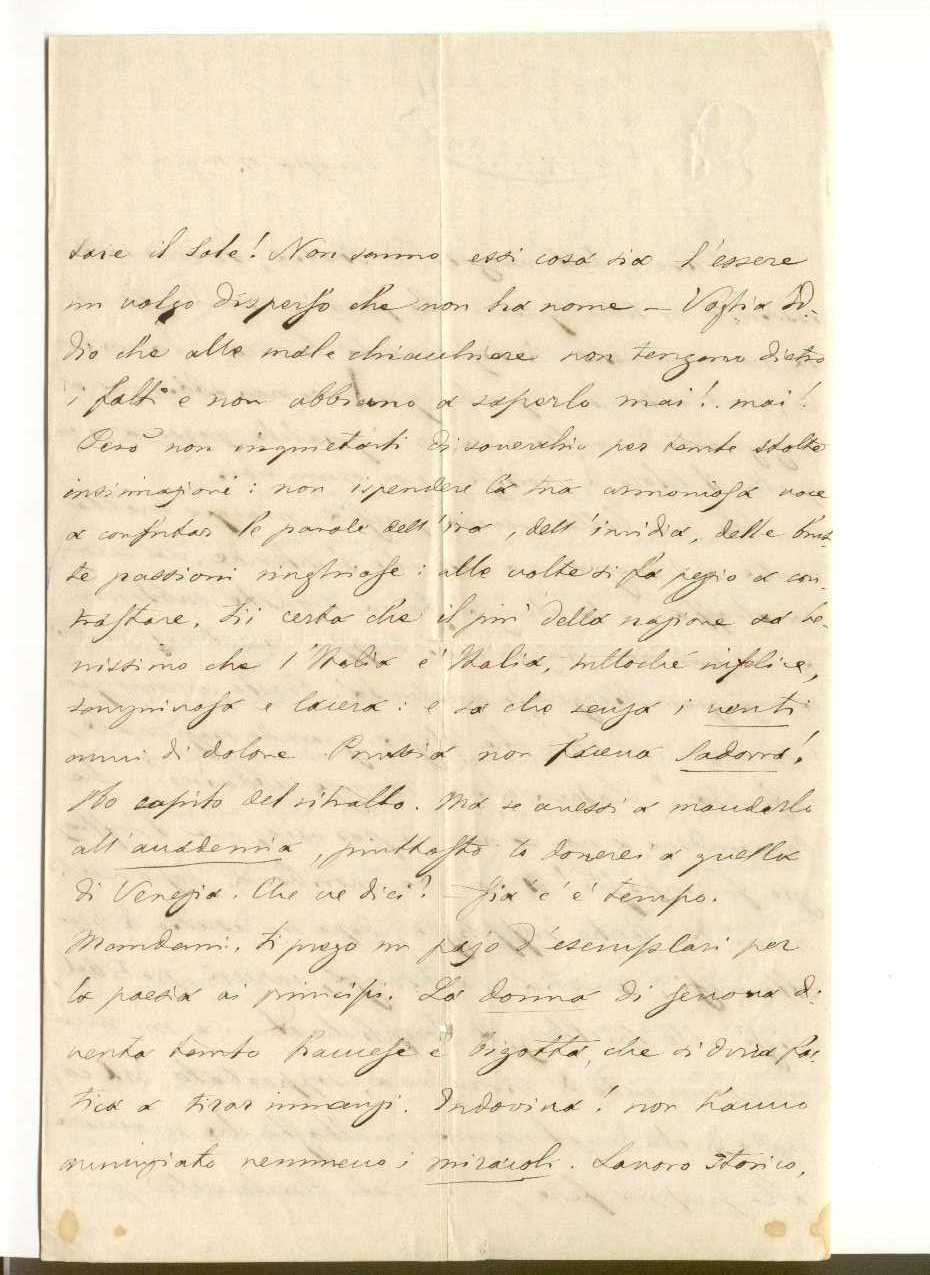 sare il sale! Non sanno essi cosa sia l'essere
un volgo disperso che non ha nome – Voglia Id-
dio che alle male chiacchiere non tengano dietro
i fatti e non abbiano a saperlo mai!.. mai!
Però non inquietarti di soverchio per tante stolte
insinuazioni: non ispendere la tua armoniosa voce
a confutar le parole dell'ira, dell'invidia, delle brut-
te passioni ringhiose: alle volte si fa pegio a con-
trastare. Sii certa che il più della nazione sa be-
nissimo che l'Italia è Italia, tuttoché infelice,
sanguinosa e lacera: e sa che senza i venti
anni di dolore Prussia non faceva Sadowa!
Ho capito del ritratto. Ma se avessi a mandarlo
all'accademia, piuttosto lo donerei a quella
di Venezia. Che ne dici? – Già c'è tempo.
Mandami, ti prego un pajo d'esemplari per
la poesia ai principi. La donna di Genova di-
venta tanto francese e bigotta, che si dura fa-
tica a tirar innanzi. Indovina! non hanno
annunziato nemmeno i miracoli. Lavoro storico,